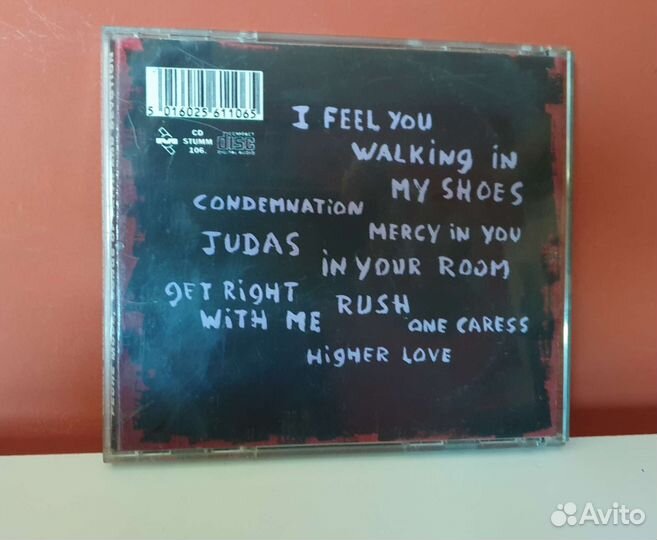 5 016025 611065
CD
STUMM
106.
COMPACT
disc
DIGITAL AUDIO
I FEEL YOU
WALKING IN
MY SHOES
CONDEMNATION
MERCY IN YOU
JUDAS
IN YOUR ROOM
GET RIGHT
WITH ME
RUSH
ONE CARESS
HIGHER LOVE
Avito